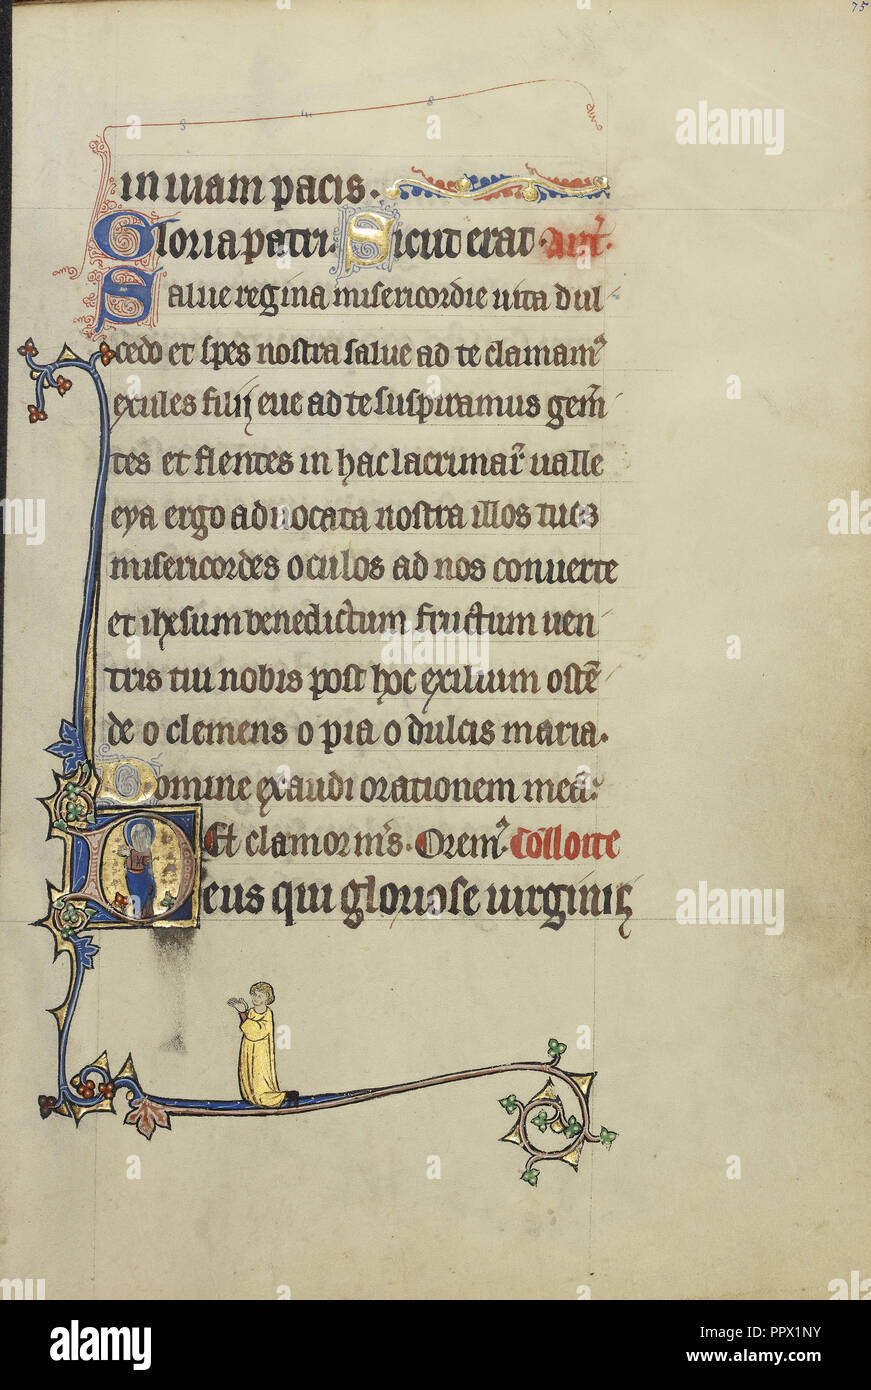 75
in uiam pacis.
Gloria patri. Sicut erat. Ant̄.
Salue regina misericordie uita dul
cedo et spes nostra salue ad te clamam᷒
exules filij eue ad te suspiramus gem̄
tes et flentes in hac lacrimar̄ ualle
eya ergo aduocata nostra illos tuos
misericordes oculos ad nos conuerte
et ihesum benedictum fructum uen
tris tui nobis post hoc exilium ostē
de o clemens o pia o dulcis maria.
Domine exaudi orationem meā.
Et clamor m̄s. Orem᷒. Collecte
Deus qui gloriose uirginis
alamy
alamy
alamy
a
a
a
alamy
Image ID: PPX1NY
www.alamy.com